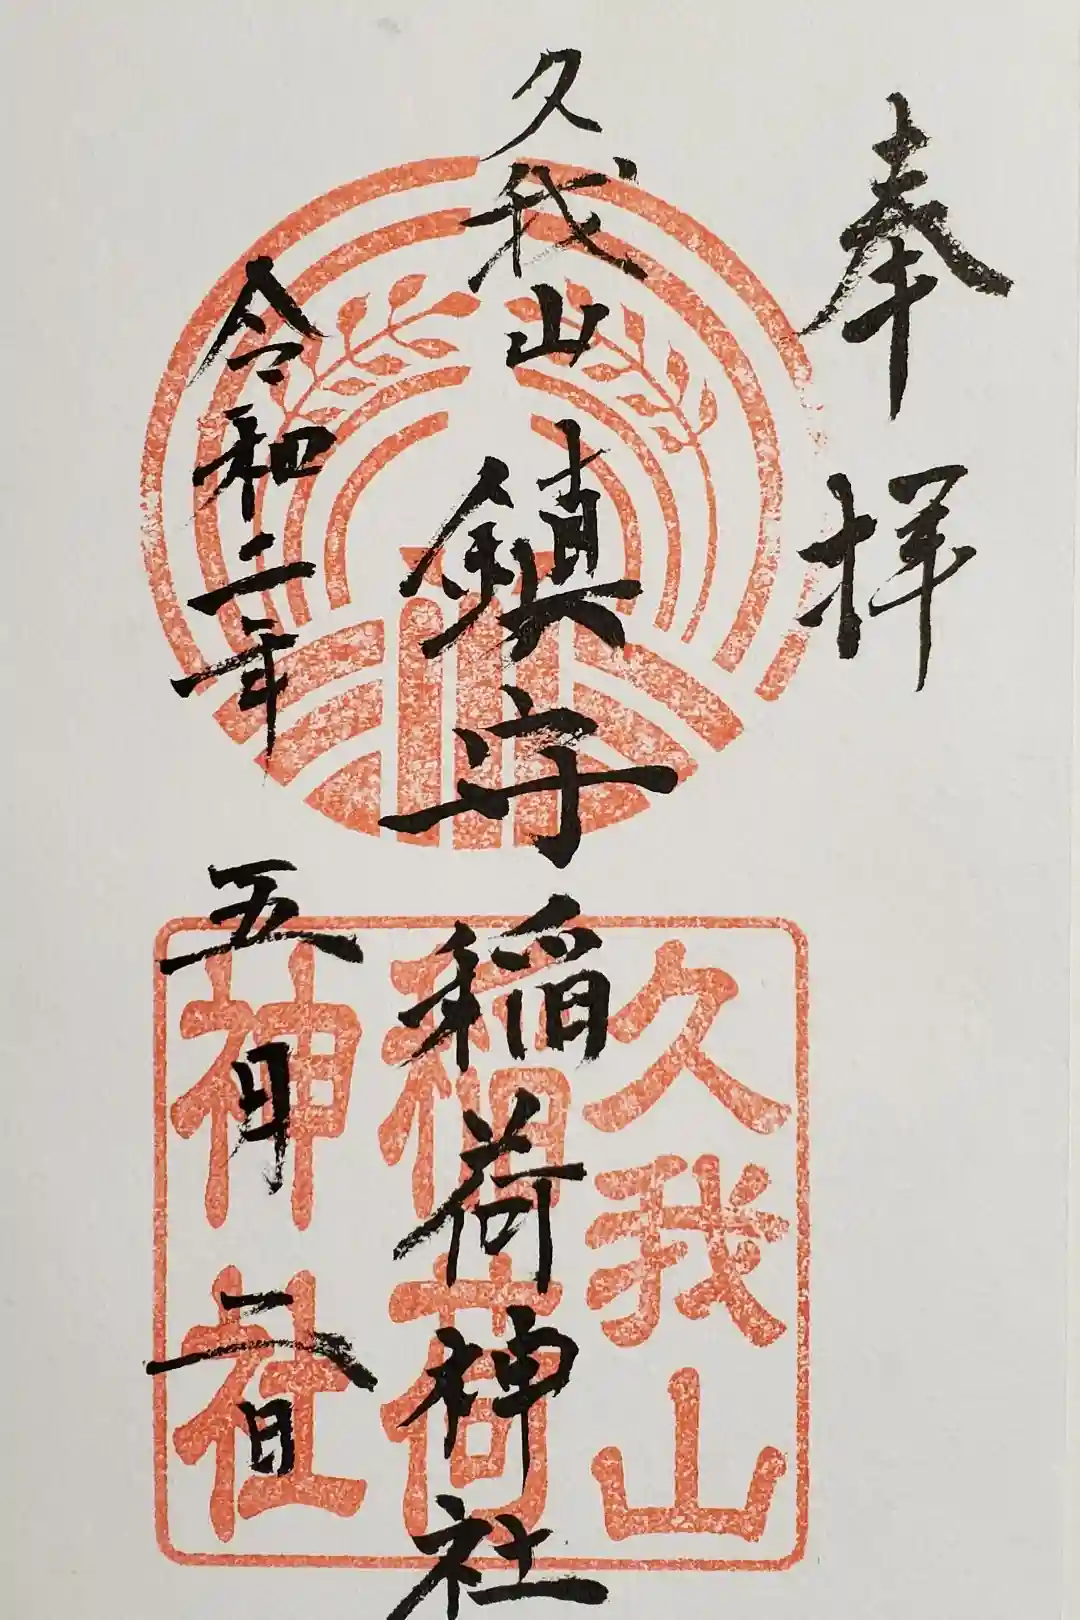 奉拝
久我山鎮守稲荷神社
令和二年五月二日
久我山
稲荷
神社